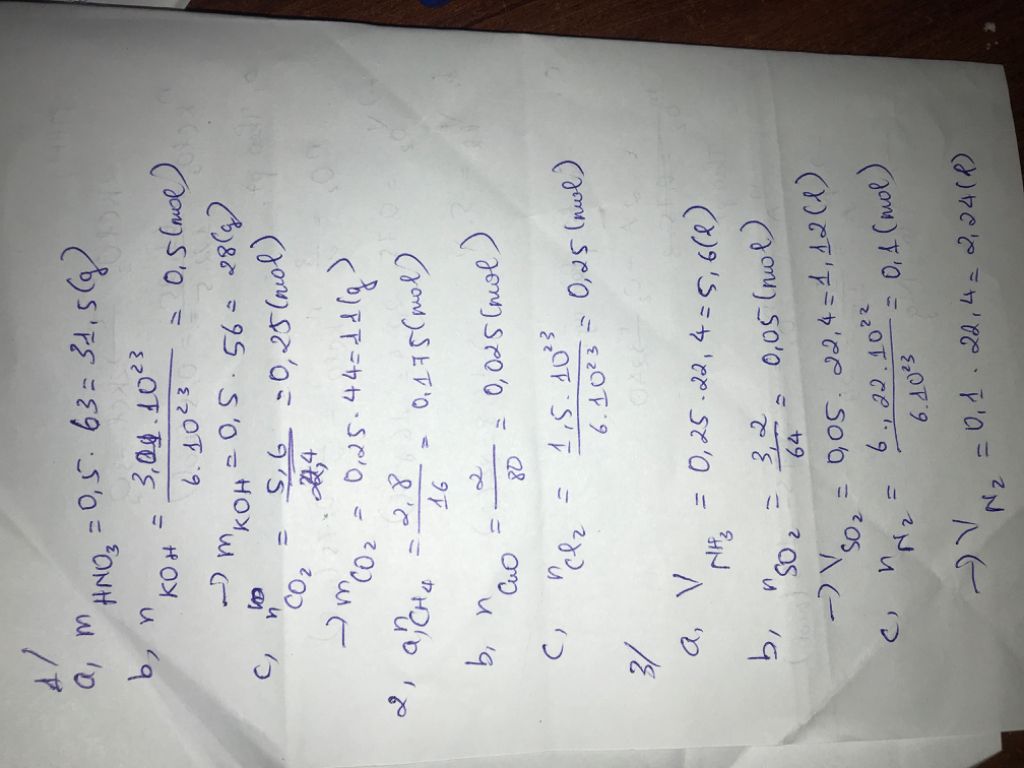 1/
a, m HNO3 = 0,5 . 63 = 31,5(g)
b, n KOH = 3,01 . 10^23 / 6.10^23 = 0,5(mol)
→ m KOH = 0,5 . 56 = 28(g)
c, n CO2 = 5,6 / 22,4 = 0,25(mol)
→ m CO2 = 0,25 . 44 = 11(g)
2, a, n CH4 = 2,8 / 16 = 0,175(mol)
b, n CuO = 2 / 80 = 0,025(mol)
c, n Cl2 = 1,5 . 10^23 / 6.10^23 = 0,25(mol)
3/
a, V NH3 = 0,25 . 22,4 = 5,6(l)
b, n SO2 = 3,2 / 64 = 0,05(mol)
→ V SO2 = 0,05 . 22,4 = 1,12(l)
c, n N2 = 6,22 . 10^22 / 6.10^23 = 0,1(mol)
→ V N2 = 0,1 . 22,4 = 2,24(l)